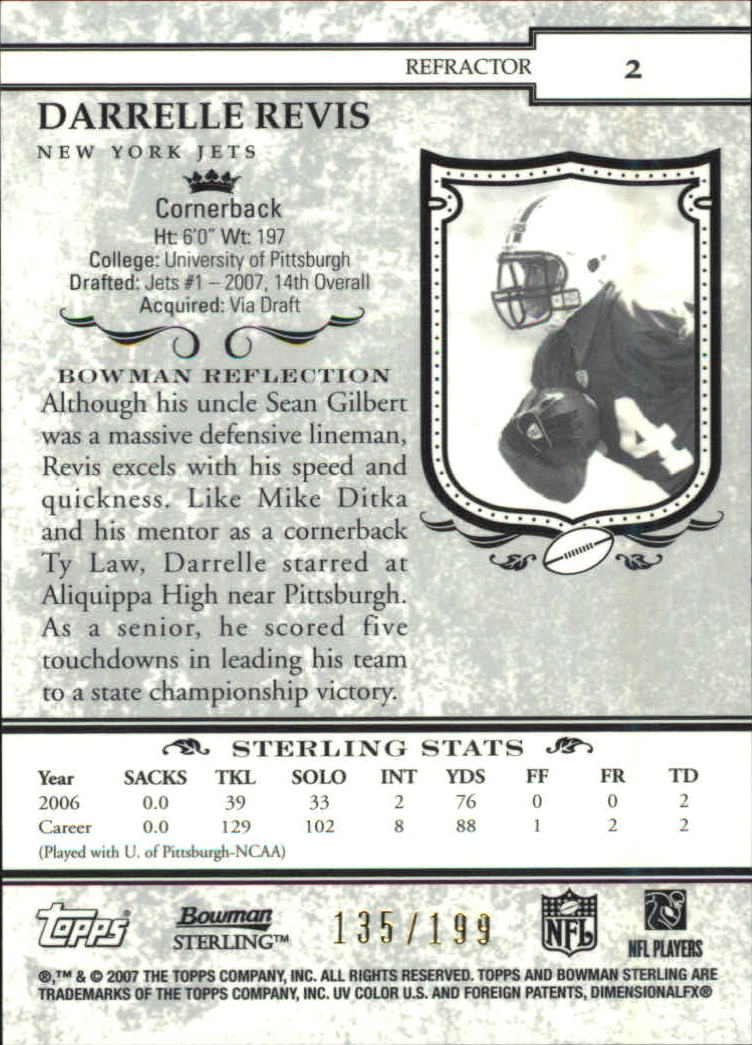 REFRACTOR 2
DARRELLE REVIS
NEW YORK JETS
Cornerback
Ht: 6'0" Wt: 197
College: University of Pittsburgh
Drafted: Jets #1 – 2007, 14th Overall
Acquired: Via Draft
BOWMAN REFLECTION
Although his uncle Sean Gilbert
was a massive defensive lineman,
Revis excels with his speed and
quickness. Like Mike Ditka
and his mentor as a cornerback
Ty Law, Darrelle starred at
Aliquippa High near Pittsburgh.
As a senior, he scored five
touchdowns in leading his team
to a state championship victory.
4
STERLING STATS
Year SACKS TKL SOLO INT YDS FF FR TD
2006 0.0 39 33 2 76 0 0 2
Career 0.0 129 102 8 88 1 2 2
(Played with U. of Pittsburgh-NCAA)
Topps Bowman STERLING™ 135/199 NFL NFL PLAYERS
®,™ & © 2007 THE TOPPS COMPANY, INC. ALL RIGHTS RESERVED. TOPPS AND BOWMAN STERLING ARE
TRADEMARKS OF THE TOPPS COMPANY, INC. UV COLOR U.S. AND FOREIGN PATENTS, DIMENSIONALFX®